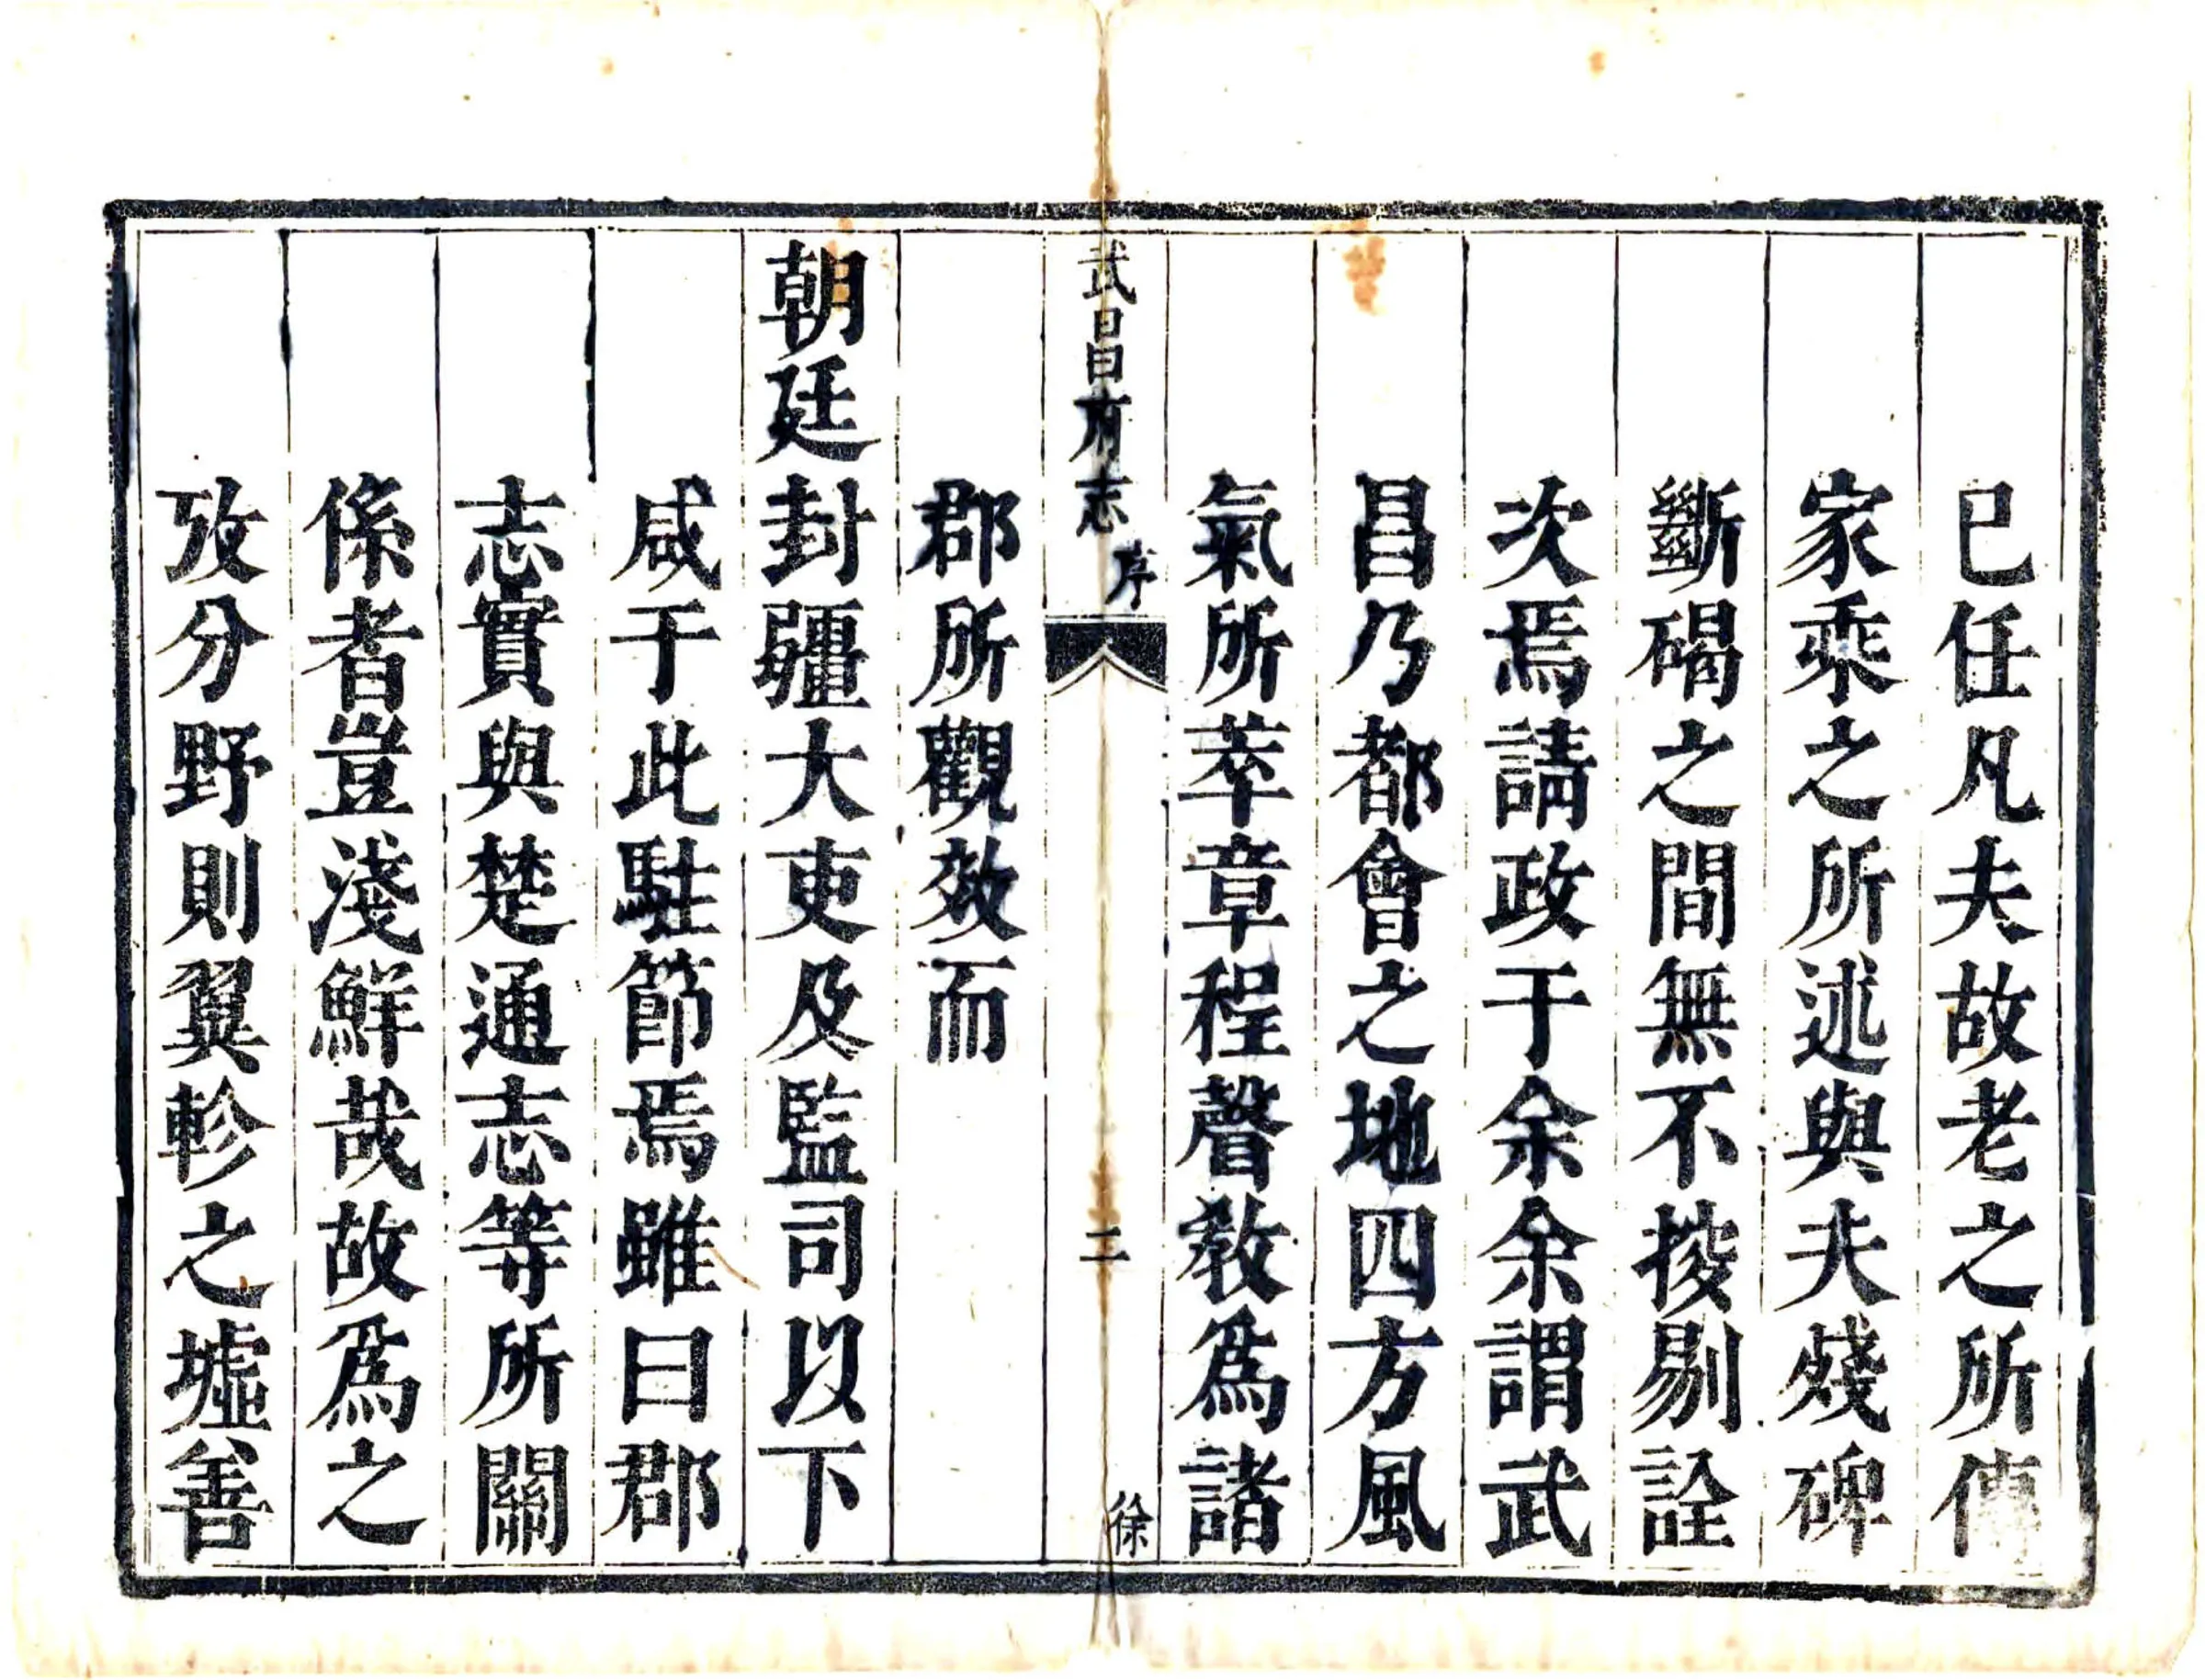 已任凡夫故老之所傳
家乘之所述與夫殘碑
斷碣之間無不搜剔詮
次焉請政于余余謂武
昌乃都會之地四方風
氣所萃章程聲敎爲諸
武昌府志 序 二 徐
郡所觀效而
朝廷封疆大吏及監司以下
咸于此駐節焉雖曰郡
志實與楚通志等所關
係者豈淺鮮哉故爲之
攷分野則翼軫之墟善